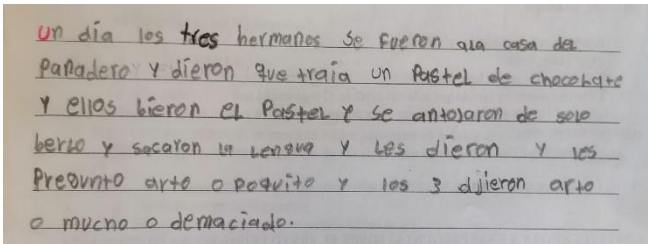 un día los tres hermanos se fueron ala casa del
Panadero y dieron que traia un Pastel de chocohate
Y ellos bieron el Pastel y se antojaron de solo
berlo y sacaron la Lengua y Les dieron y les
Pregunto arto o poquito y los 3 djieron arto
o mucno o demaciado.